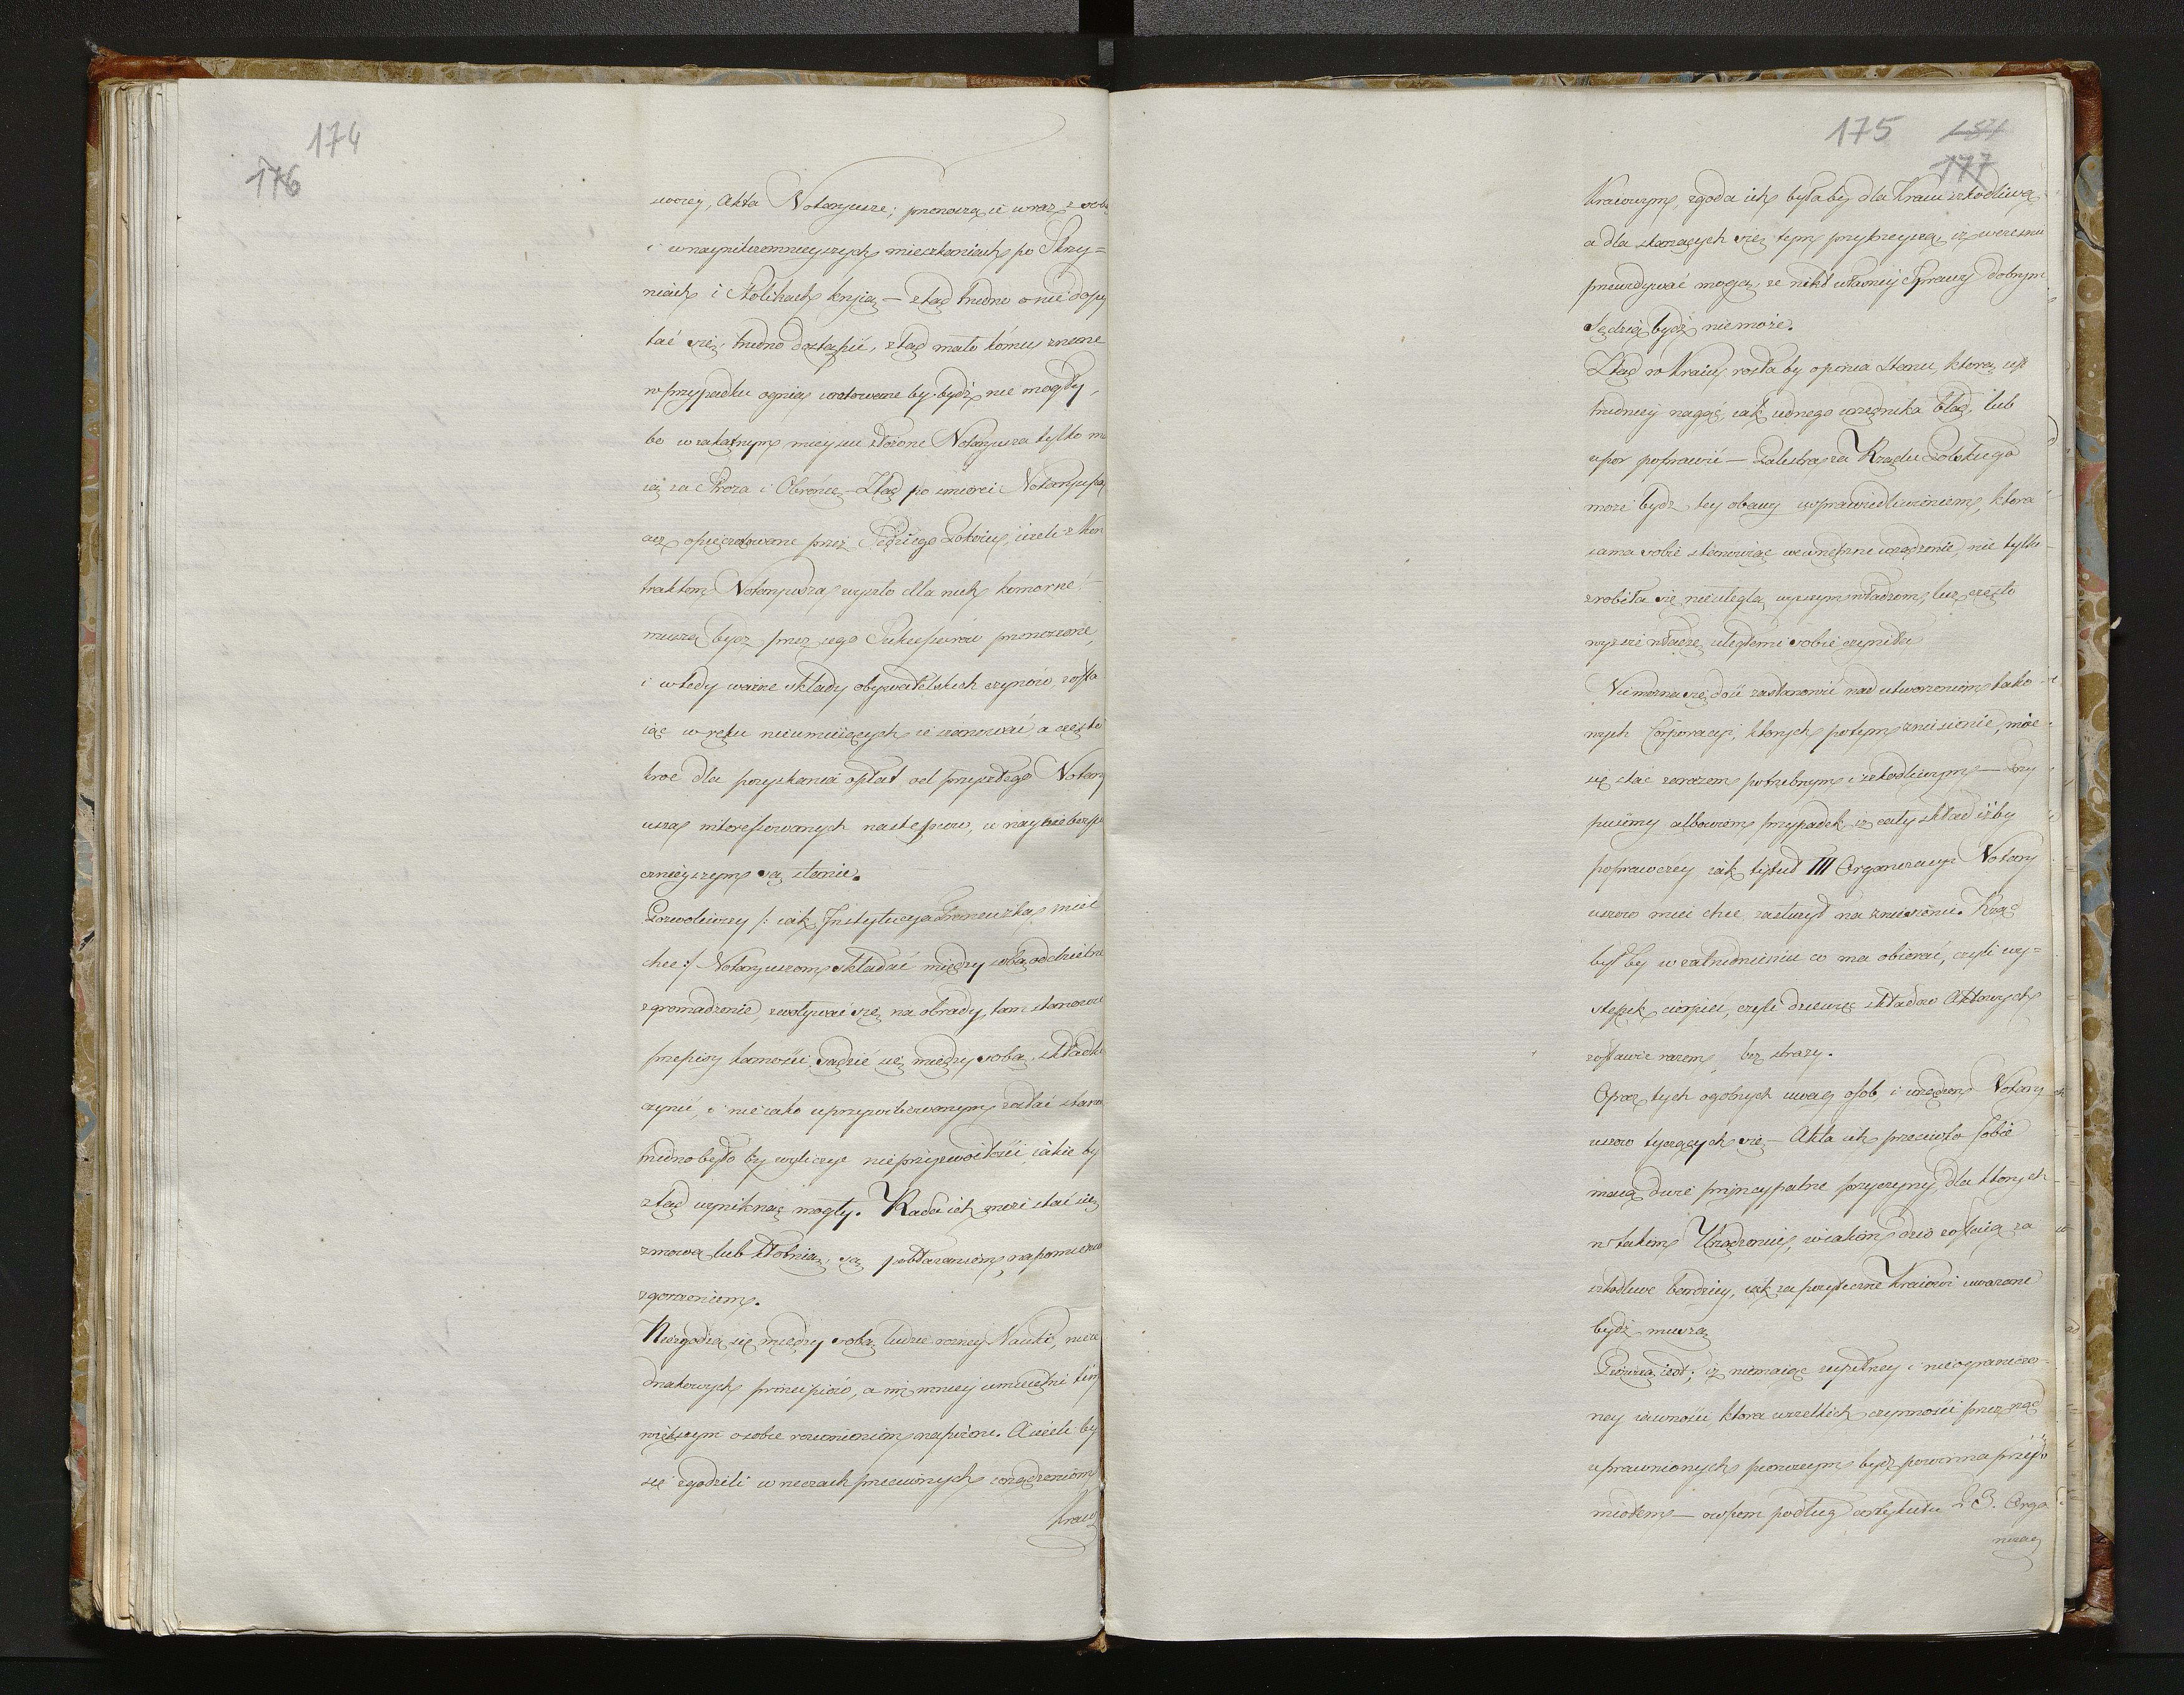 174
176
swoiey, Akta Notaryusze; przenoszą ie wraz z sobą
i w naynikczemnieyszych mieszkaniach po Skrzy=
niach i Stolikach kryią — ztąd trudno o nie dopy
tać się, trudno dostąpić, ztąd mało komu znane
w przypadku ognia ratowane by bydź nie mogły,
bo w zakątnym mieyscu złożone Notaryusza tylko ma
ią za Stroża i Obrońcę — Ztąd po śmierci Notaryusza
acz opieczętowane przez Sędziego Pokoiu, ieżeli z kon
traktem Notaryusza wyszło dla nich komorne
muszą bydź przez iego Sukcessorów przenoszone,
i wtedy ważne składy obywatelskich czynów, zosta
iąc w ręku nieumieiących ie szanować a często
kroć dla pozyskania opłat od przyszłego Notary
usza interessowanych następców, w nayniebezpie
cznieyszym są stanie.
Pozwoliwszy /: iak Instytucya Francuzka mieć
chce :/ Notaryuszom składać między sobą oddzielne
zgromadzenie, zwoływać się na obrady, tam stanowić
przepisy karności, sądzić się między sobą, składki
czynić, i nieiako uprzywileiowanym zostać stanem
trudno było by wyliczyć nieprzyzwoitości, iakie by
ztąd wyniknąć mogły. Rada ich może stać się
zmową lub kłótnią, są pobłażaniem, napomnienie
zgorszeniem.
Niezgodzą się między sobą ludzie rozney Nauki, nieie
dnakowych principiów, a im mniey umieiętni tém
większym o sobie rozumieniem napojeni. A ieżeli by
się zgodzili w rzeczach przeciwnych urządzeniom
praw
175
177
Kraiowym, zgoda ich byłaby dla Kraiu szkodliwą
a dla skarżących się tym przykrzeyszą, iż wcześnie
przewidywać mogą, że nikt własney Sprawy dobrym
Sędzią bydź niemoże.
Ztąd w Kraiu rosła by opinia Stanu, którą iest
trudniey nagiąć, iak iednego urzędnika błąd, lub
upor poprawić — Palestra za Rządu Polskiego
może bydź tey obawy usprawiedliwieniem, która
sama sobie stanowiąc wewnętrzne urządzenie, nie tylko
zrobiła się nieuległą wyższym władzom, lecz często
wyższe władze uległemi sobie czyniła
Niemożna się dość zastanowić nad utworzeniem tako
wych Corporacyi, których potym zniesienie, może
się stać zarazem potrzebnym i szkodliwym — Przy
puśćmy albowiem przypadek iż cały skład izby
poprawczey iak tytuł III Organizacyi Notary
uszów mieć chce, zasłużył na zniesienie. Rząd
byłby w zatrudnieniu co ma obierać, czyli wy=
stępek cierpieć, czyli dziewięć składów Aktowych
zostawić razem bez straży.
Oprocz tych ogólnych uwag osób, i urządzeń Notary
uszów tyczących się — Akta ich przeciwko sobie
maią dwie pryncypalne przyczyny, dla których
w takiem Urządzeniu, w iakiem dziś zostaią za
szkodliwe bardziey, iak za pożyteczne Kraiowi uważane
bydź muszą
Pierwsza iest; iż niemaiąc zupełney i nieograniczo=
ney iawności, która wszelkich czynności przez rząd
uprawnionych pierwszym bydź powinna przy
miotem — owszem podług artykułu 23. Orga
nizacy